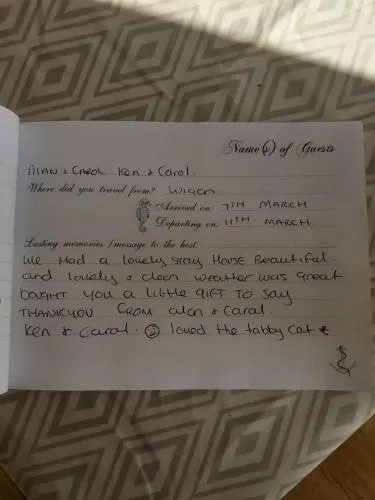 Name(s) of Guests
ALAN & CAROL Ken & Carol.
Where did you travel from? WIGAN
Arrived on: 7TH MARCH
Departing on: 11TH MARCH
Lasting memories / message to the host:
We Had a lovely stay House Beautiful
and lovely & clean weather was great
bought you a little gift to say
THANKYOU From alan & Carol.
Ken & Carol. ☺ loved the tabby cat *